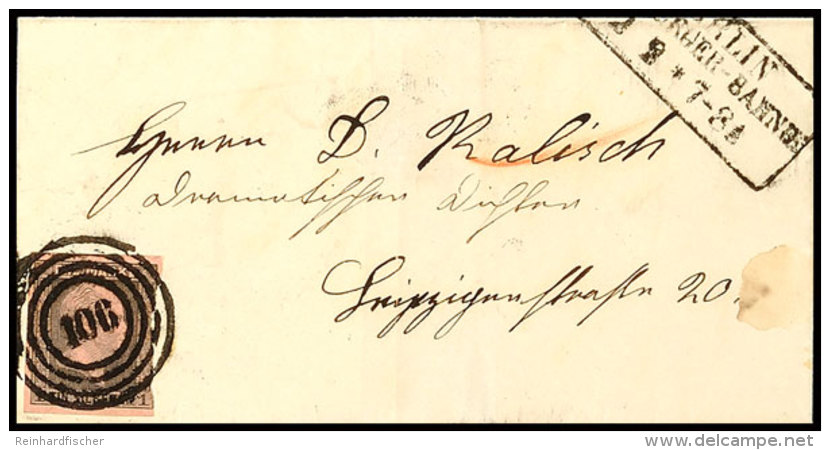 BERLIN
BURGER-BAHNH
2 * 7-8A
Herrn D. Kalisch
Dramatischer Dichter
Leipzigerstraße 20.
106
1
Reinhardfischer
delcampe.net